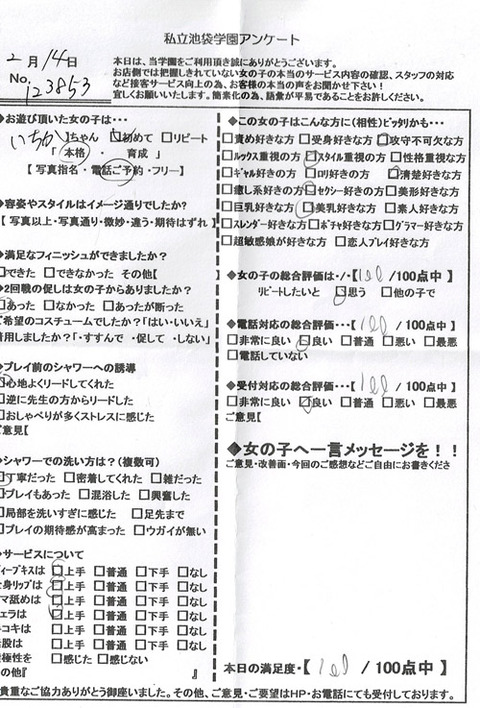 私立池袋学園アンケート
2月14日
No. 123853
本日は、当学園をご利用頂き誠にありがとうございます。
お店側では把握しきれていない女の子の本当のサービス内容の確認、スタッフの対応
など接客サービス向上の為、お客様の本当の声をお聞かせ下さい！
宜しくお願いいたします。簡素化の為、語彙が平易であることをお許しください。
◆お遊び頂いた女の子は・・・
いちか】ちゃん ☐初めて ☐リピート
「 本格 ・ 育成 」
【 写真指名・電話ご予約・フリー】
◆容姿やスタイルはイメージ通りでしたか？
【 写真以上・写真通り・微妙・違う・期待はずれ 】
◆満足なフィニッシュができましたか？
☐できた ☐できなかった その他【
◆2回戦の促しは女の子からありましたか？
☐あった ☐なかった ☐あったが断った
ご希望のコスチュームでしたか？「はい・いいえ」
着用しましたか？「・すすんで ・促して ・しない」
◆プレイ前のシャワーへの誘導
☐心地よくリードしてくれた
☐逆に先生の方からリードした
☐おしゃべりが多くストレスに感じた
ご意見【
◆シャワーでの洗い方は？（複数可）
☐丁寧だった ☐密着してくれた ☐雑だった
☐プレイもあった ☐混浴した ☐興奮した
☐局部を洗いすぎに感じた ☐足先まで
☐プレイの期待感が高まった ☐ウガイが無い
◆サービスについて
ディープキスは ☐上手 ☐普通 ☐下手 ☐なし
全身リップは ☐上手 ☐普通 ☐下手 ☐なし
タマ舐めは ☐上手 ☐普通 ☐下手 ☐なし
フェラは ☐上手 ☐普通 ☐下手 ☐なし
手コキは ☐上手 ☐普通 ☐下手 ☐なし
素股は ☐上手 ☐普通 ☐下手 ☐なし
積極性を ☐感じた ☐感じない
その他『 』
◆この女の子はこんな方に（相性）ピッタリかも・・・
☐責め好きな方 ☐受身好きな方 ☐攻守不可欠な方
☐ルックス重視の方 ☐スタイル重視の方 ☐性格重視な方
☐ギャル好きな方 ☐ロリ好きの方 ☐清楚好きな方
☐癒し系好きな方 ☐セクシー好きの方 ☐美形好きな方
☐巨乳好きな方 ☐美乳好きな方 ☐素人好きな方
☐スレンダー好きな方 ☐ポチャ好きな方 ☐グラマー好きな方
☐超敏感娘が好きな方 ☐恋人プレイ好きな方
◆女の子の総合評価は・・・【100/100点中 】
リピートしたいと ☐思う ☐他の子で
◆電話対応の総合評価・・・【100 / 100点中 】
☐非常に良い ☐良い ☐普通 ☐悪い ☐最悪
☐電話していない
◆受付対応の総合評価・・・【100 / 100点中 】
☐非常に良い ☐良い ☐普通 ☐悪い ☐最悪
ご意見【
◆女の子へ一言メッセージを！！
ご意見・改善画・今回のご感想などご自由にお書きくださ
本日の満足度・【 100 / 100点中 】
貴重なご協力ありがとう御座いました。その他、ご意見・ご要望はHP・お電話にても受付しております。